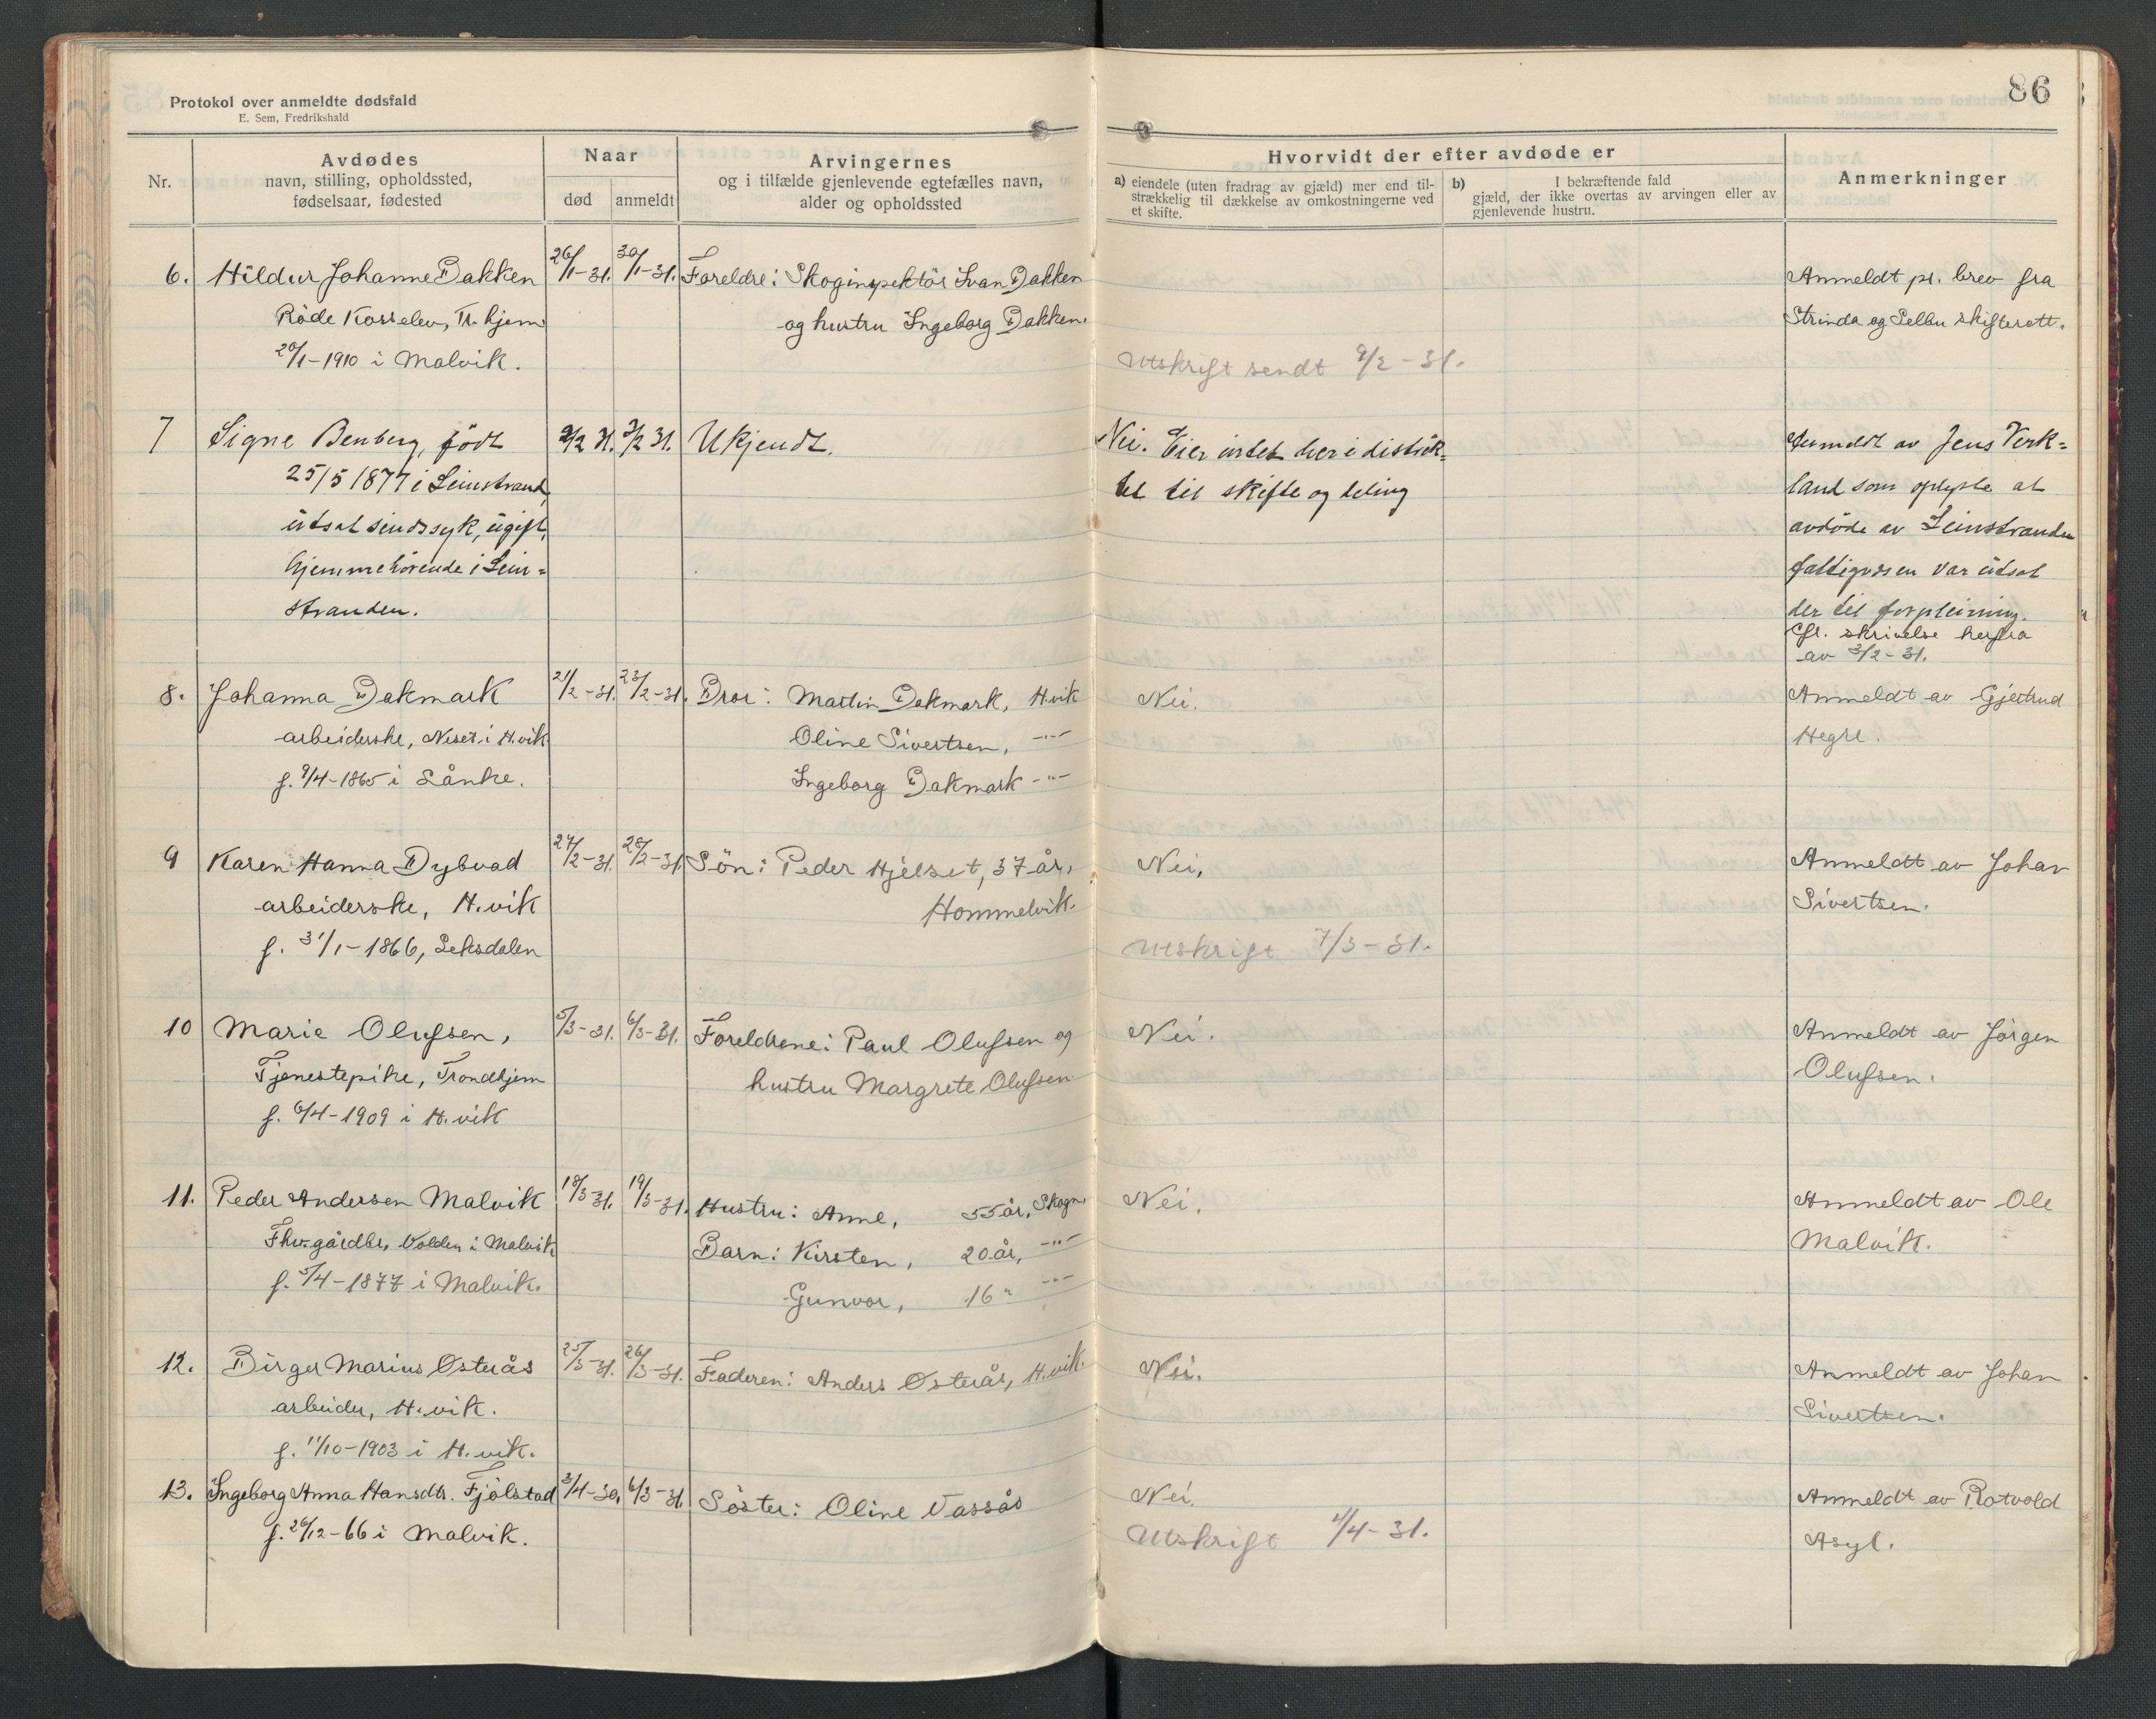 86
Protokol over anmeldte dødsfald
E. Sem, Fredrikshald
Nr.
Avdødes
navn, stilling, opholdssted,
fødselsaar, fødested
Naar
død
anmeldt
Arvingernes
og i tilfælde gjenlevende egtefælles navn,
alder og opholdssted
Hvorvidt der efter avdøde er
a) eiendele (uten fradrag av gjæld) mer end til-
strækkelig til dækkelse av omkostningerne ved
et skifte.
b) I bekræftende fald
gjæld, der ikke overtas av arvingen eller av
gjenlevende hustru.
Anmerkninger
6. Hildur Johanne Bakken 26/1-31. 30/1-31. Foreldre: Skoginspektör Ivan Bakken Anmeldt pr. brev fra
Röde Korselev, Tr.hjem og hustru Ingeborg Bakken. Strinda og Selbu skifterett.
20/1-1910 i Malvik. Utskrift sendt 9/2-31.
7 Signe Benberg, födt 2/2 31. 3/2 31. Ukjendt. Nei. Eier intet her i distrik= Anmeldt av Jens Verk=
25/5 1877 i Leinstrand, tet til skifte og deling land som oplyste at
utsat sindssyk, ugift, avdöde av Leinstranden
hjemmehörende i Lein= fattigvæsen var utsat
stranden. der til forpleining.
Cfr. skrivelse herfra
av 3/2-31.
8. Johanna Bakmark 21/2-31. 23/2-31. Bror: Martin Bakmark, H.vik Nei. Anmeldt av Gjertrud
arbeiderske, Neset i H.vik Oline Sivertsen, -"- Hegre.
f. 9/4-1865 i Lånke. Ingeborg Bakmark -"-
9 Karen Hanna Dybvad 27/2-31. 28/2-31. Sön: Peder Hjelset, 37 år, Nei, Anmeldt av Johan
arbeiderske, H.vik Hommelvik. Sivertsen.
f. 31/1-1866, Leksdalen Utskrift 7/3-31.
10 Marie Olufsen, 5/3-31. 6/3-31. Foreldrene: Paul Olufsen og Nei. Anmeldt av Jörgen
Tjenestepike, Trondhjem hustru Margrete Olufsen Olufsen.
f. 6/4-1909 i H.vik
11. Peder Andersen Malvik 18/3-31. 19/3-31. Hustru: Anne, 55 år, Skogn. Nei. Anmeldt av Ole
Fhv. gårdbr. Volden i Malvik Barn: Kirsten, 20 år, -"- Malvik.
f. 5/4-1877 i Malvik. Gunvor, 16 " -"-
12. Birger Marius Österås 25/3-31. 26/3-31. Faderen: Anders Österås, H.vik. Nei. Anmeldt av Johan
arbeider, H.vik. Sivertsen.
f. 11/10-1903 i H.vik.
13. Ingeborg Anna Hansdtr. Fjölstad 3/4-30. 6/3-31. Söster: Oline Vassås Nei. Anmeldt av Rotvold
f. 26/12-66 i Malvik. Utskrift 1/4-31. Asyl.